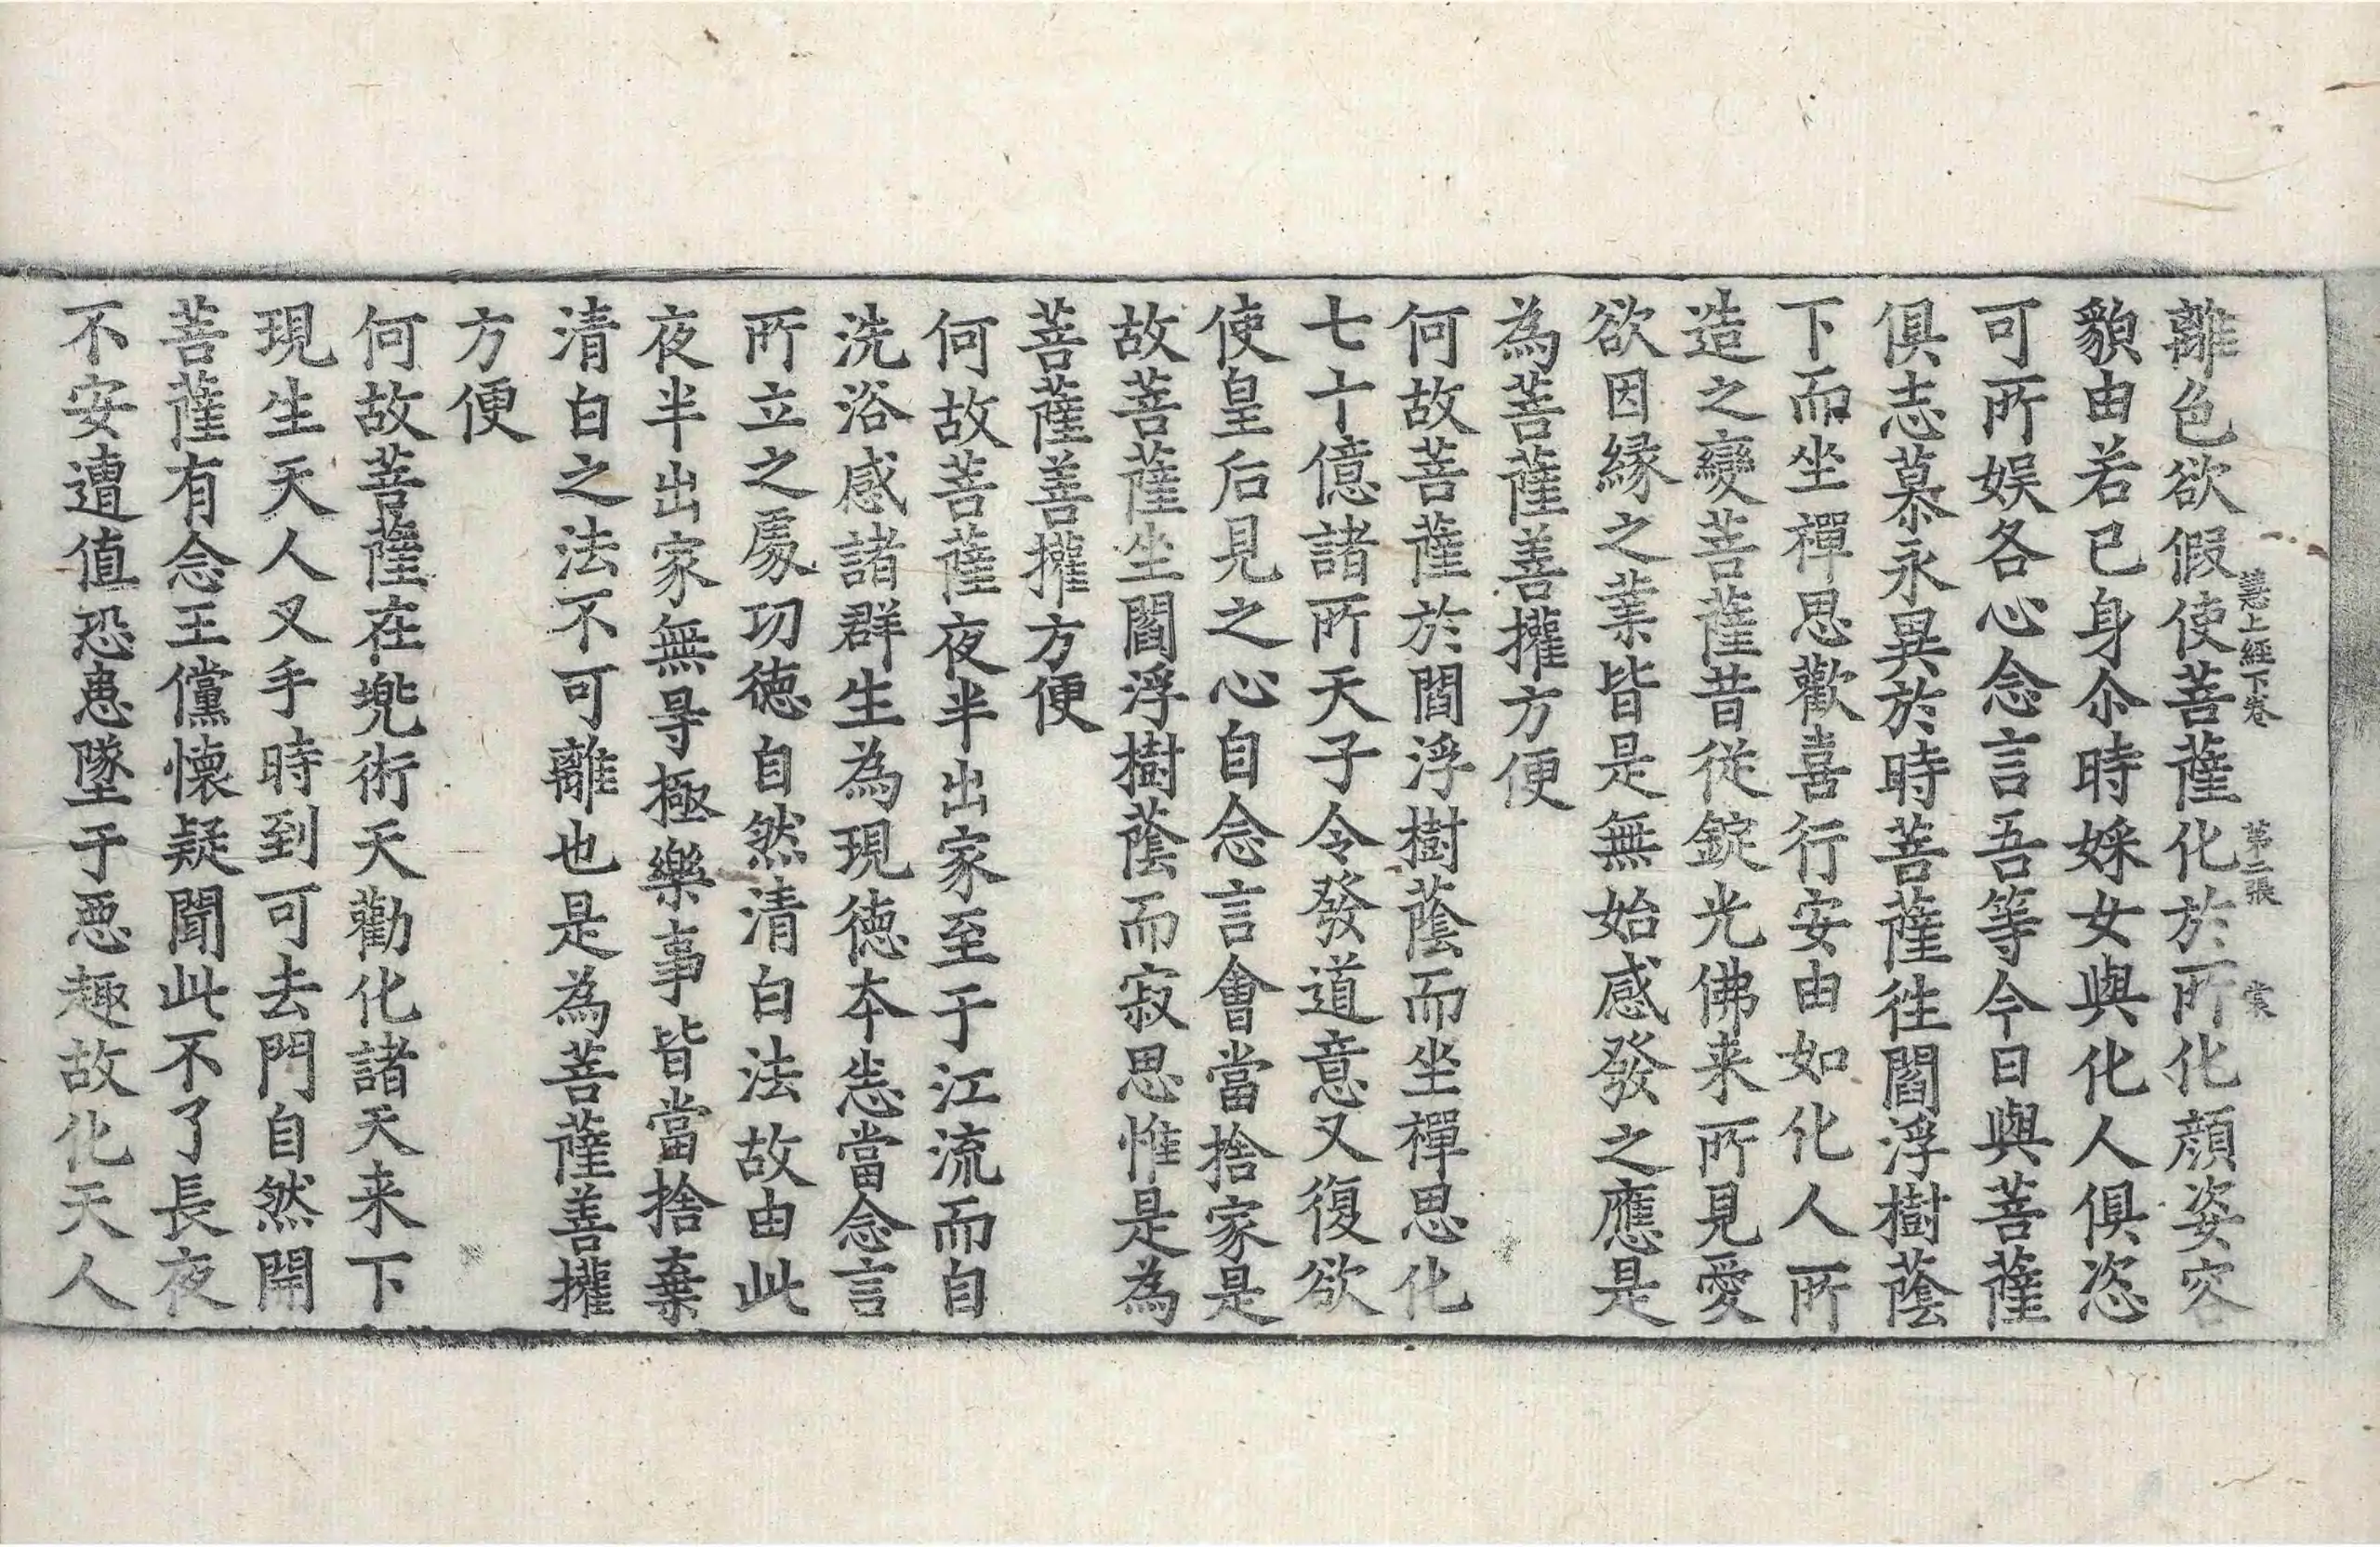 慧上經下卷 第二張
離色欲假使菩薩化於所化顔姿容
貌由若已身尒時婇女與化人俱恣
可所娱各心念言吾等今日與菩薩
俱志慕永異於時菩薩往閻浮樹蔭
下而坐禪思歡喜行安由如化人所
造之變菩薩昔從錠光佛来所見愛
欲因縁之業皆是無始感發之應是
為菩薩善攉方便
何故菩薩於閻浮樹蔭而坐禪思化
七十億諸所天子令發道意又復欲
使皇后見之心自念言會當捨家是
故菩薩坐閻浮樹蔭而寂思惟是為
菩薩善攉方便
何故菩薩夜半出家至于江流而自
洗浴感諸群生為現徳本恙當念言
所立之處功徳自然清白法故由此
夜半出家無㝵極樂事皆當捨棄
清白之法不可離也是為菩薩善攉
方便
何故菩薩在兠術天勸化諸天来下
現生天人叉手時到可去門自然開
菩薩有念王儻懐疑聞此不了長夜
不安遭值恐患墜于惡趣故化天人